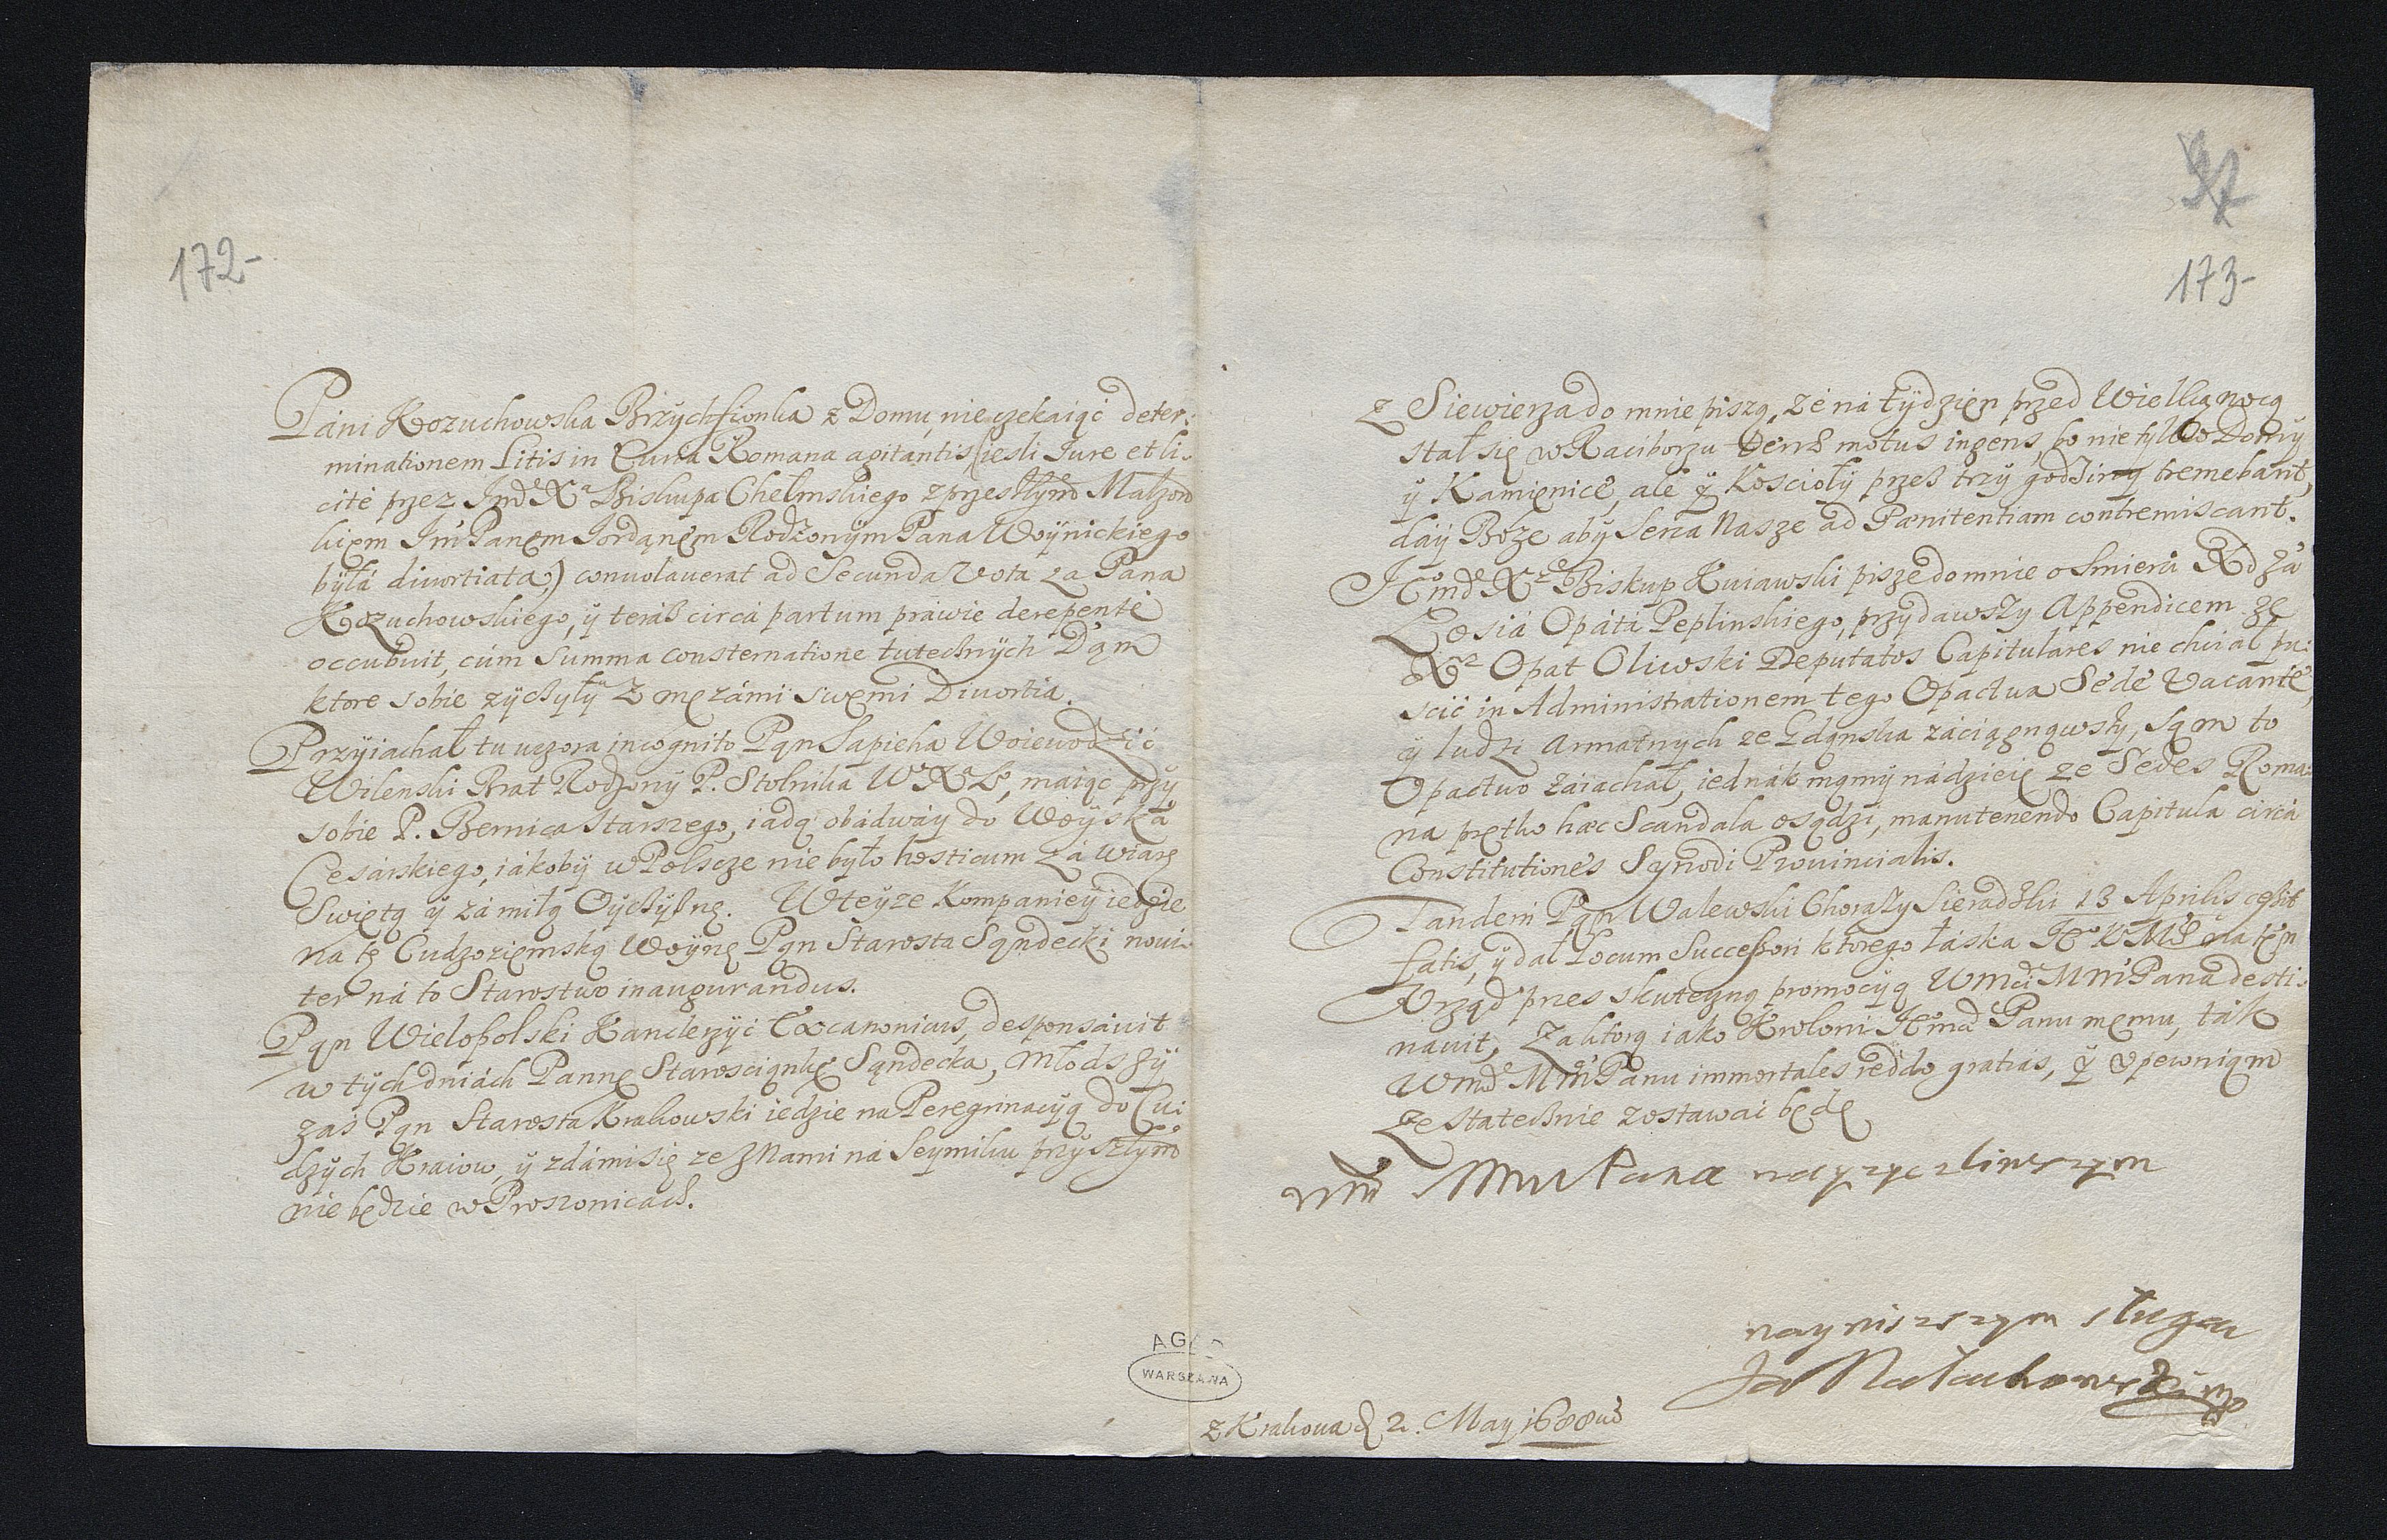 172-
Pani Kozuchowska Brzychfionka z Domu, nie czekaiąc deter:
minationem Litis in Curia Romana agitantis (iesli Jure et li-
cité przez Jmd Xa Biskupa Chelmskiego z przeszłym Małzon
kiem Jm Panem Jordanem Rodzonym Pana Woynickiego
była divortiata,) convolaverat ad Secunda Vota za Pana
Kozuchowskiego, y teraß circa partum prawie derepente
occubuit, cum summa consternatione tutecznych Dam
ktore sobie zyczyły z męzami swemi Divortia.
Przyiachał tu wczora incognito Pąn Sapieha Woiewodzic
Wilenski Brat Rodzony P. Stolnika W X L, maiąc przy
sobie P. Bernica Starszego, iadą obadway do Woyska
Cesarskiego, iakoby w Polscze nie było hosticum za wiarę
Swiętą y za miłą Oyczyznę. W teyze Kompaniey iedzie
na tę Cudzoziemską Woynę Pąn Starosta Sądecki novi-
ter na to Starostwo inaugurandus.
Pąn Wielopolski Kanclerzyc Excanonicus, desponsavit
w tych dniach Pannę Starosciąnkę Sądecką, Młodszy
zas Pąn Starosta Krakowski iedzie na Peregrinacyą do Cu-
dzych Kraiow, y zda mi się ze z Nami na Seymiku przyszłym
nie będzie w Proszowicach.
97
173-
Z Siewierza do mnie piszą, ze na tydzien przed Wielką nocą
stał się w Raciborzu terræ motus ingens, bo nie tylko Domy
y Kamienice, ale y Koscioły przes trzy godziny tremebant,
day Boze aby Serca Nasze ad Pænitentiam contremiscant.
Jmd Xdz Biskup Kuiawski pisze do mnie o smierci Xdza
Łosia Opata Peplinskiego, przydawszy Appendicem ze
Xdz Opat Oliwski Deputatos Capitulares nie chciał pu:
scic in Administrationem tego Opactwa Sede Vacante,
y ludzi armatnych ze Gdąnska zaciągnąwszy, sąm to
Opactwo zaiachał, iednak mąmy nadzieię ze Sedes Roma:
na prętko hæc Scandala osądzi, manutenendo Capitula circa
Constitutiones Synodi Provincialis.
Tandem Pąn Walewski Chorąży Sieradzki 13 Aprilis ceßit
fatis, y dał Locum Succeßori ktorego łaska JKMsci na ten
Urząd przes skuteczną promocyą WMci MM Pana desti-
navit, za ktorą iako Krolowi Jmci Panu memu, tak
Wmd MM Panu immortales reddo gratias, y upewniąm
ze statecznie zostawac będę
WMd MM Pana nayzyczliwszym
nayniszszym sługą
Ja Małachowski
z Krakowa d 2. May 1688
AGAD
WARSZAWA